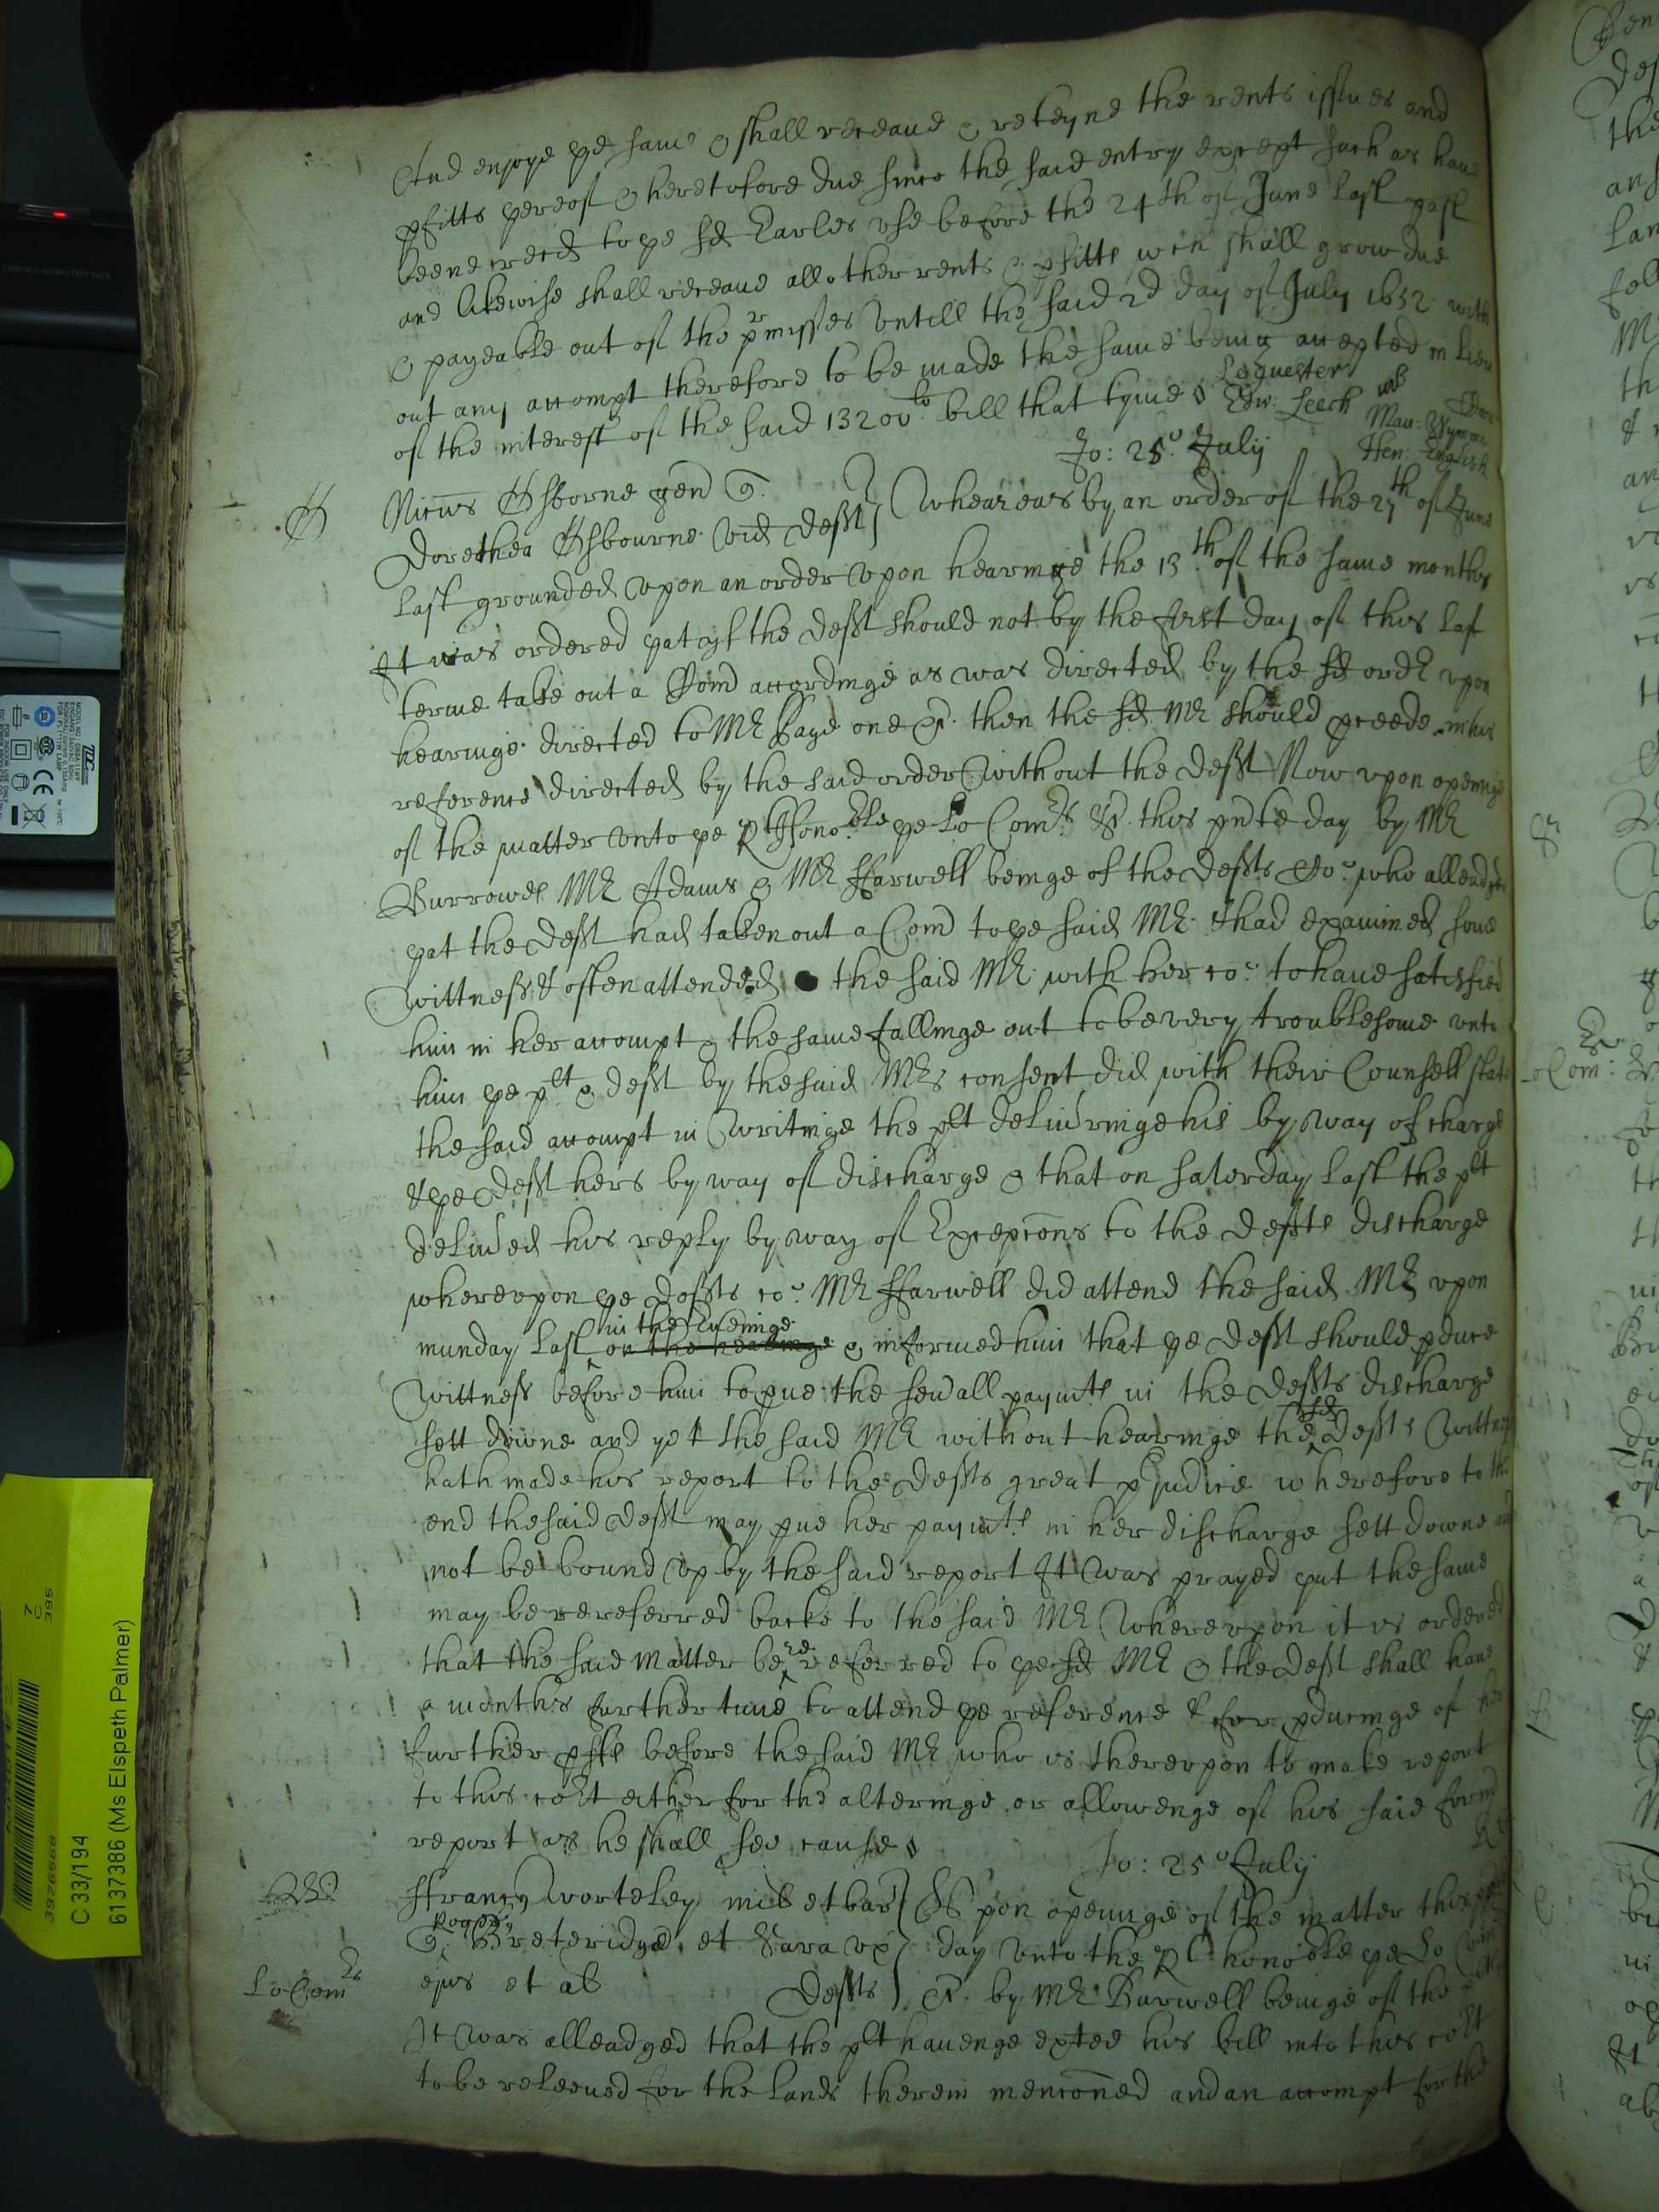 And enjoye ye same & shall receaue & reteyne the rents issues and
pfitts yereof & heretofore due since the said entry except such as haue
beene recd to ye sd Earles vse before the 24th of June last past
and likewise shall receaue all other rents & pfitts wch shall grow due
& payeable out of the pmisses vntill the said 2d day of July 1652 with
out any accompt therefore to be made the same being accepted in lieu
of the interest of the said 13200li till that tyme
Edw: Leech
Mau: Wynne
Hen: English
Jo: 25o July
Nicus Osborne gen q.
Dorethea Osbourne vid deft } Wheareas by an order of the 27th of June
last grounded vpon an order vpon hearinge the 13th of the same month
It was ordered yat yf the deft should not by the first day of this last
terme take out a Comn accordinge as was directed by the sd ordr vpon
hearinge directed to Mr Page one &c. then the sd Mr should pceede in his
reference directed by the said order without the deft Now vpon openinge
of the matter vnto ye Rt Honoble ye Lo Comrs &c. this pnte day by Mr
Burrowes Mr Adams & Mr ffarwell beinge of the defts Co: who alleadged
yat the deft had taken out a Comn to ye said Mr & had examined some
wittness & often attended the said Mr with her co: to haue satisfied
him in her accompt & the same fallinge out to be very troublesome vnto
him ye plt & deft by the said Mrs consent did with their Counsell state
the said accompt in writinge the plt deliuringe his by way of charge
& ye deft hers by way of discharge & that on Saterday last the plt
deliued his reply by way of Excepcons to the defts discharge
wherevpon ye defts co: Mr ffarwell did attend the said Mr vpon
in the Eueninge
munday last on the hearinge & informed him that ye deft should pduce
wittness before him to pue the seuall paymts in the defts discharge
sd
sett downe and yet the said Mr without hearinge the defts wittness
hath made his report to the defts great pjudice wherefore to the
end the said deft may pue her paymts in her discharge sett downe and
not be bound vp by the said report It was prayed yat the same
may be rereferred backe to the said Mr wherevpon it is ordered
re
that the said matter be referred to ye sd Mr & the deft shall haue
a months further time to attend ye reference & for pducinge of her
further pfts before the said Mr who is therevpon to make report
to this cort either for the alteringe or allowenge of his said formr
report as he shall see cause
Jo: 25o July
ffrancs Worteley mil et bart } Vpon openinge of the matter this pnte
Roger
q. Breteridge et Sara vx day vnto the Rt honoble ye Lo Comrs
Lo Comrs
ejus et al Defts } &c. by Mr Barwell beinge of the
It was alleadged that the plt hauenge exted his bill into this cort
to be releeued for the lands therein mencioned and an accompt for the
C 33/194
6137386 (Ms Elspeth Palmer)
3976568
395